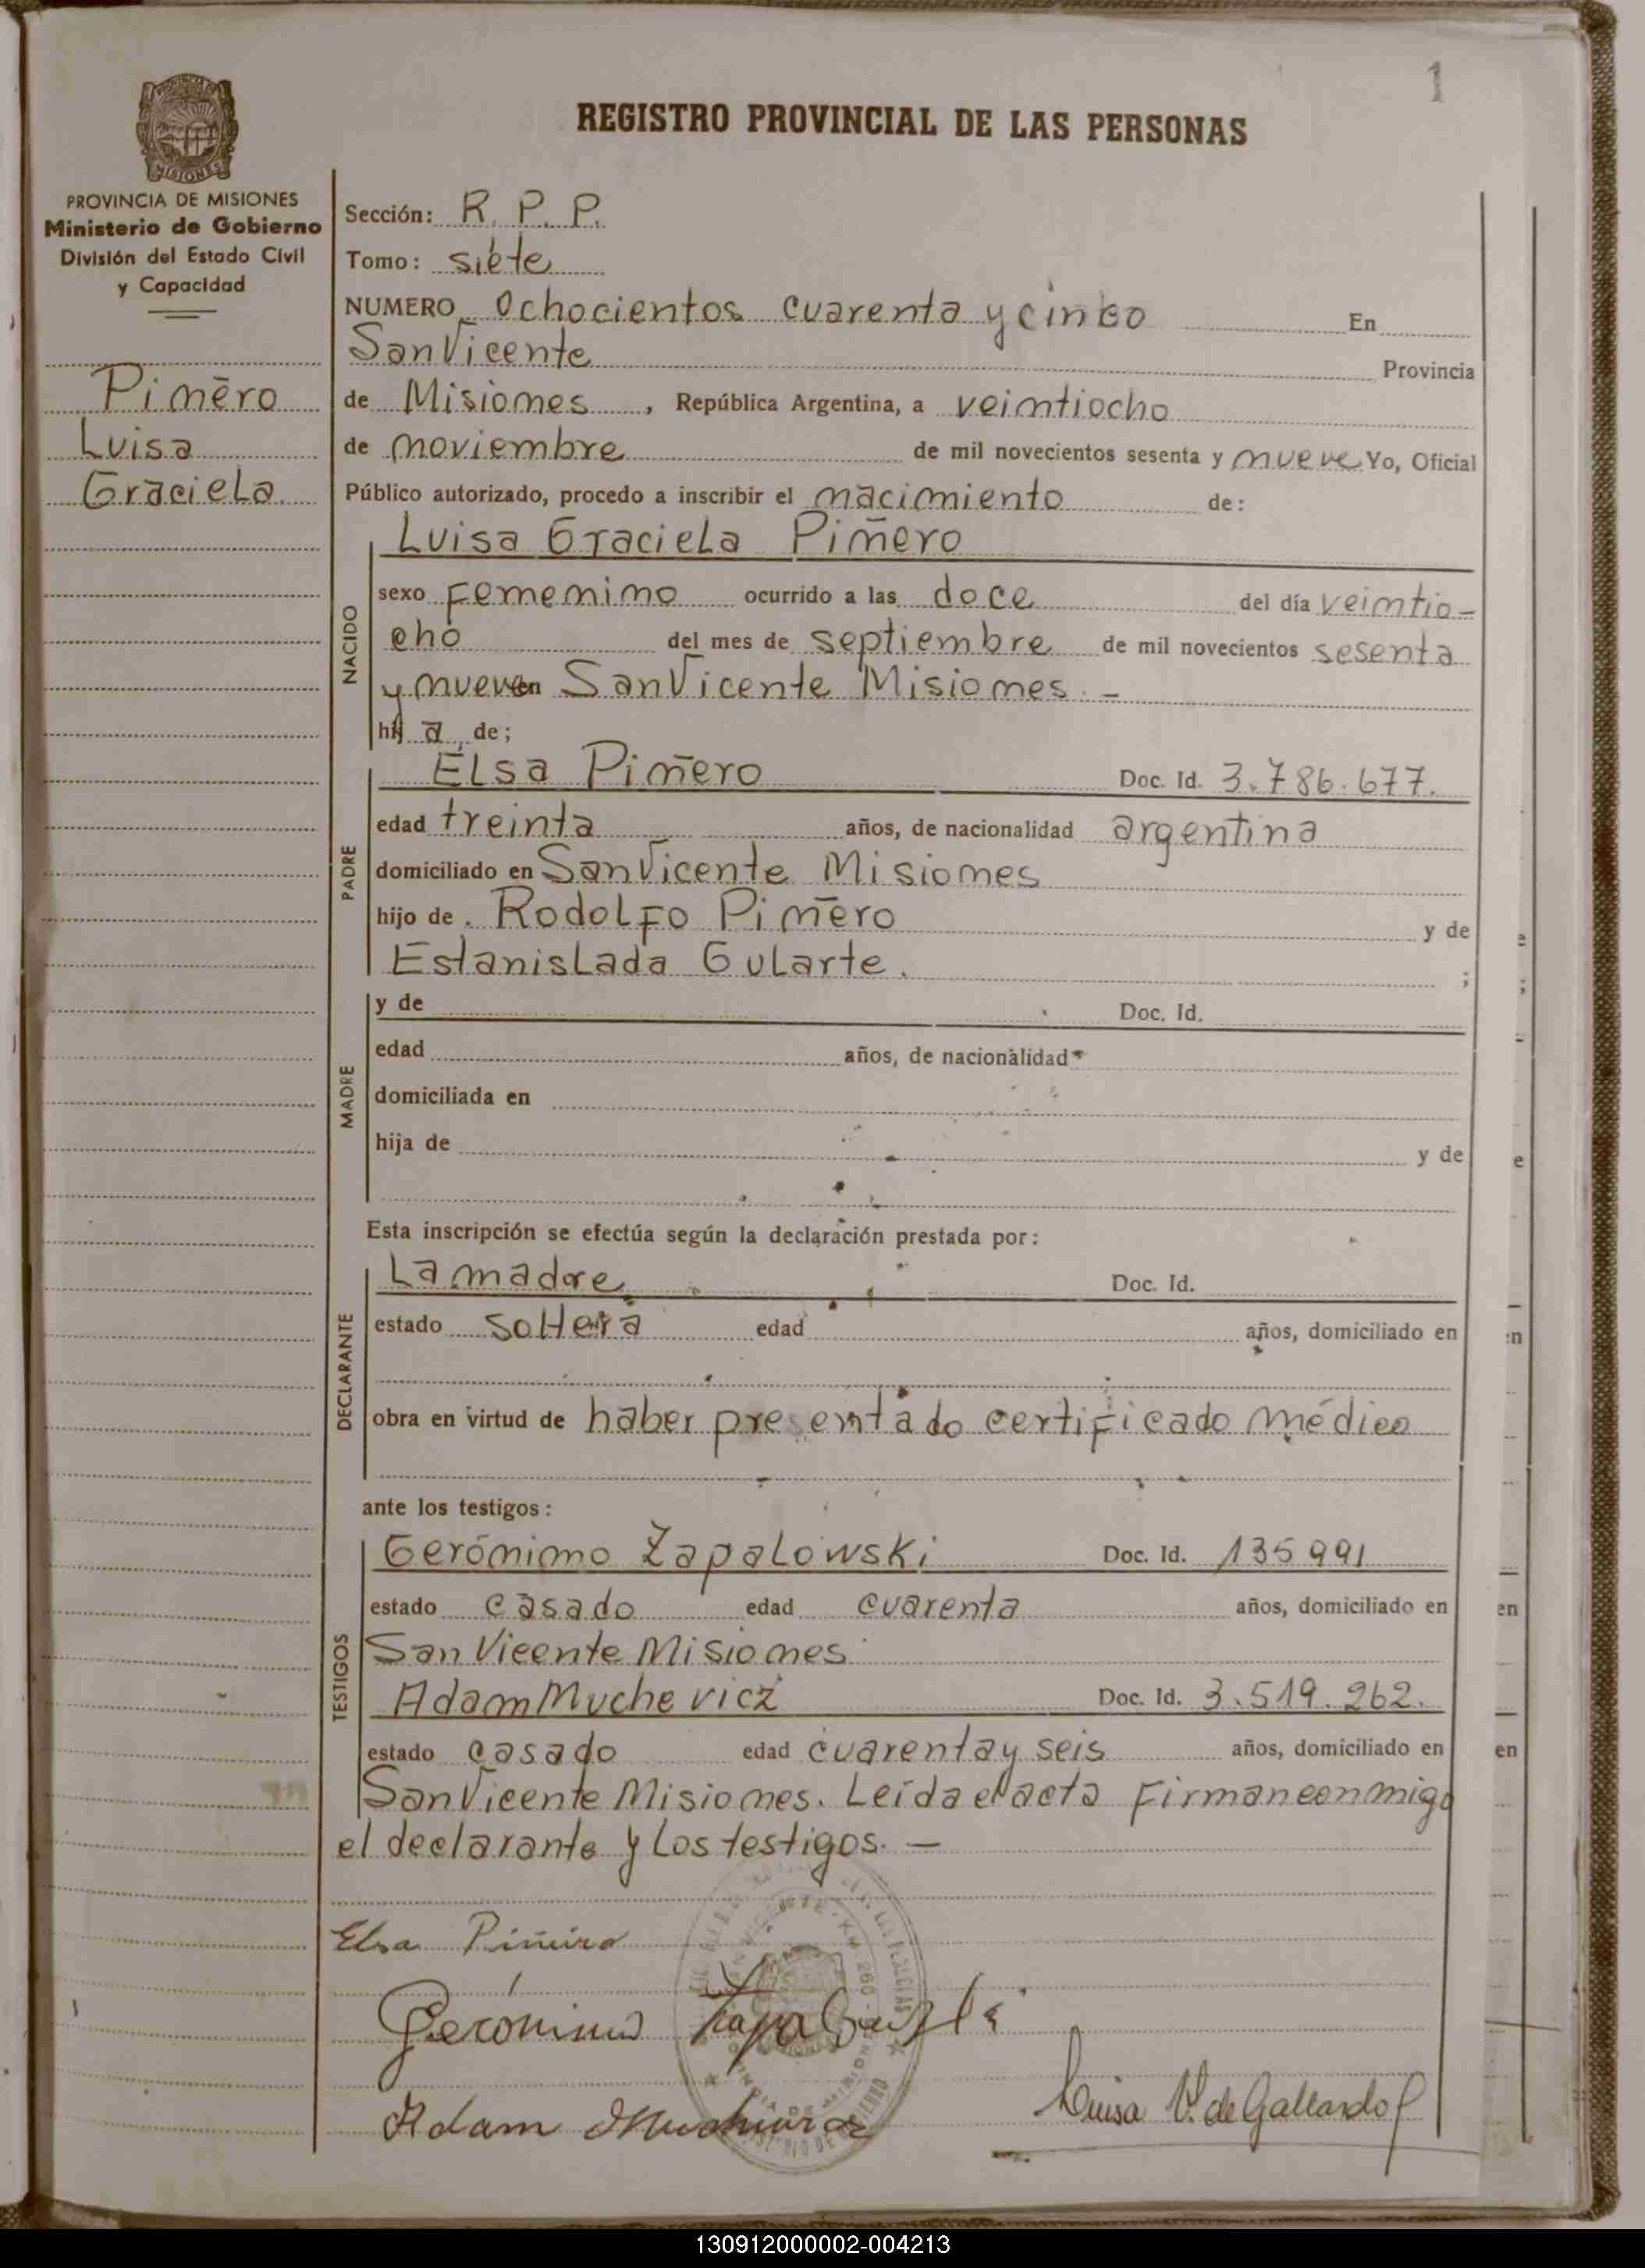 1
REGISTRO PROVINCIAL DE LAS PERSONAS
PROVINCIA DE MISIONES
Ministerio de Gobierno
División del Estado Civil
y Capacidad
Piñero
Luisa
Graciela
Sección: R. P. P.
Tomo: siete
NUMERO ochocientos cuarenta y cinco En
San Vicente Provincia
de Misiones, República Argentina, a veintiocho
de noviembre de mil novecientos sesenta y nueve Yo, Oficial
Público autorizado, procedo a inscribir el nacimiento de:
Luisa Graciela Piñero
NACIDO
sexo Femenino ocurrido a las doce del día veintio-
cho del mes de septiembre de mil novecientos sesenta
y nueve en San Vicente Misiones. -
hij a de;
PADRE
Elsa Piñero Doc. Id. 3.786.677.
edad treinta años, de nacionalidad argentina
domiciliado en San Vicente Misiones
hijo de Rodolfo Piñero y de
Estanislada Gularte. ;
MADRE
y de Doc. Id.
edad años, de nacionalidad
domiciliada en
hija de y de
Esta inscripción se efectúa según la declaración prestada por:
DECLARANTE
La madre Doc. Id.
estado soltera edad años, domiciliado en
obra en virtud de haber presentado certificado médico
ante los testigos:
TESTIGOS
Gerónimo Zapalowski Doc. Id. 135991
estado casado edad cuarenta años, domiciliado en
San Vicente Misiones
Adam Muchevicz Doc. Id. 3.519.262.
estado casado edad cuarenta y seis años, domiciliado en
San Vicente Misiones. Leída el acta Firman conmigo
el declarante y los testigos. —
Elsa Piñeiro
Gerónimo
Adam
Luisa V. de Gallardo
130912000002-004213